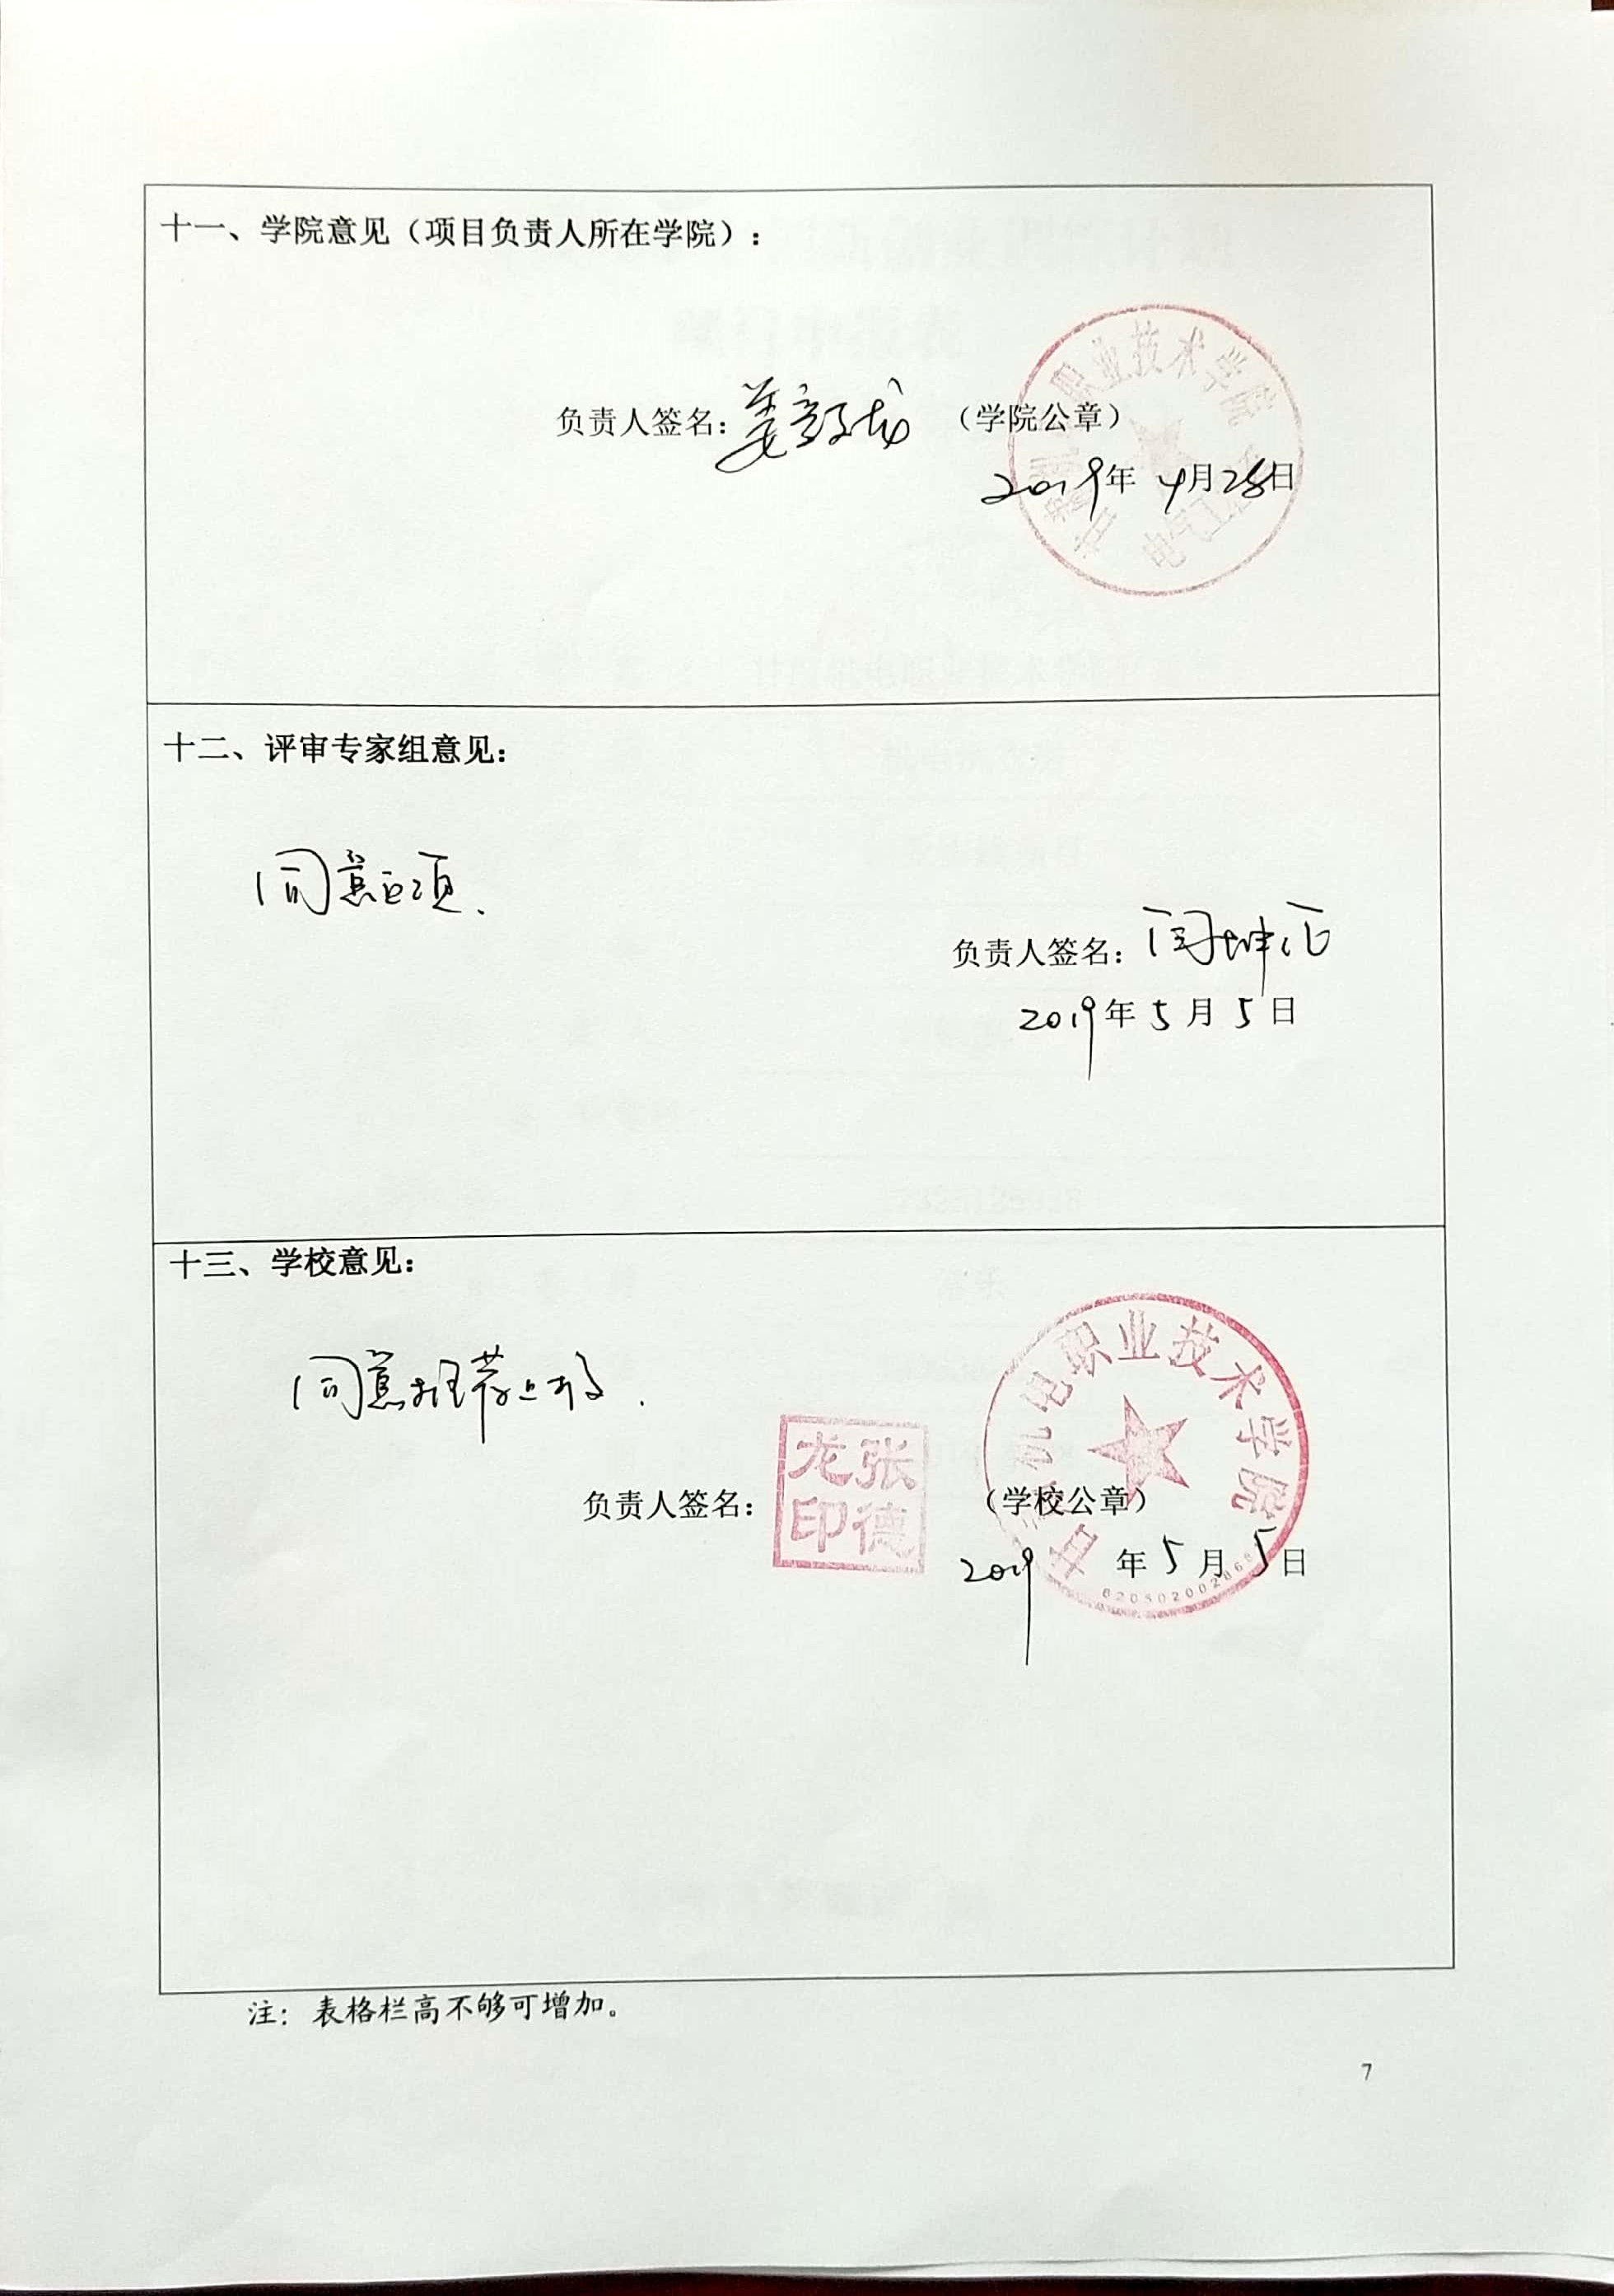 十一、学院意见（项目负责人所在学院）：
职业技术学院
负责人签名：（学院公章）
2019年 4月28日
电气工
十二、评审专家组意见：
同意立项.
负责人签名：闫坤
2019年 5月 5日
十三、学校意见：
同意推荐上报.
甘肃机电职业技术学院
张德龙印
负责人签名：（学校公章）
2019 年5月5日
注：表格栏高不够可增加。
7